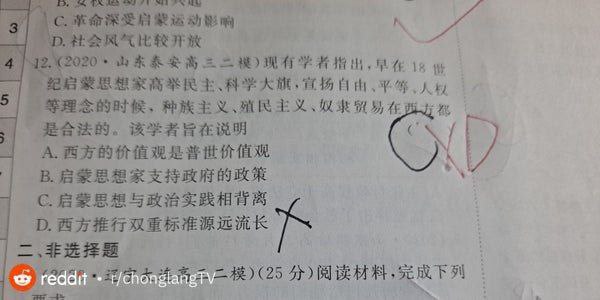 B. 女权运动开始兴起
3
C. 革命深受启蒙运动影响
D. 社会风气比较开放
4
12. (2020·山东泰安高三二模)现有学者指出,早在 18 世
纪启蒙思想家高举民主、科学大旗,宣扬自由、平等、人权
5
等理念的时候,种族主义、殖民主义、奴隶贸易在西方都
是合法的。该学者旨在说明
A. 西方的价值观是普世价值观
B. 启蒙思想家支持政府的政策
C. 启蒙思想与政治实践相背离
D. 西方推行双重标准源远流长
二、非选择题
辽宁大连高三二模)(25 分)阅读材料,完成下列
reddit · r/chonglangTV